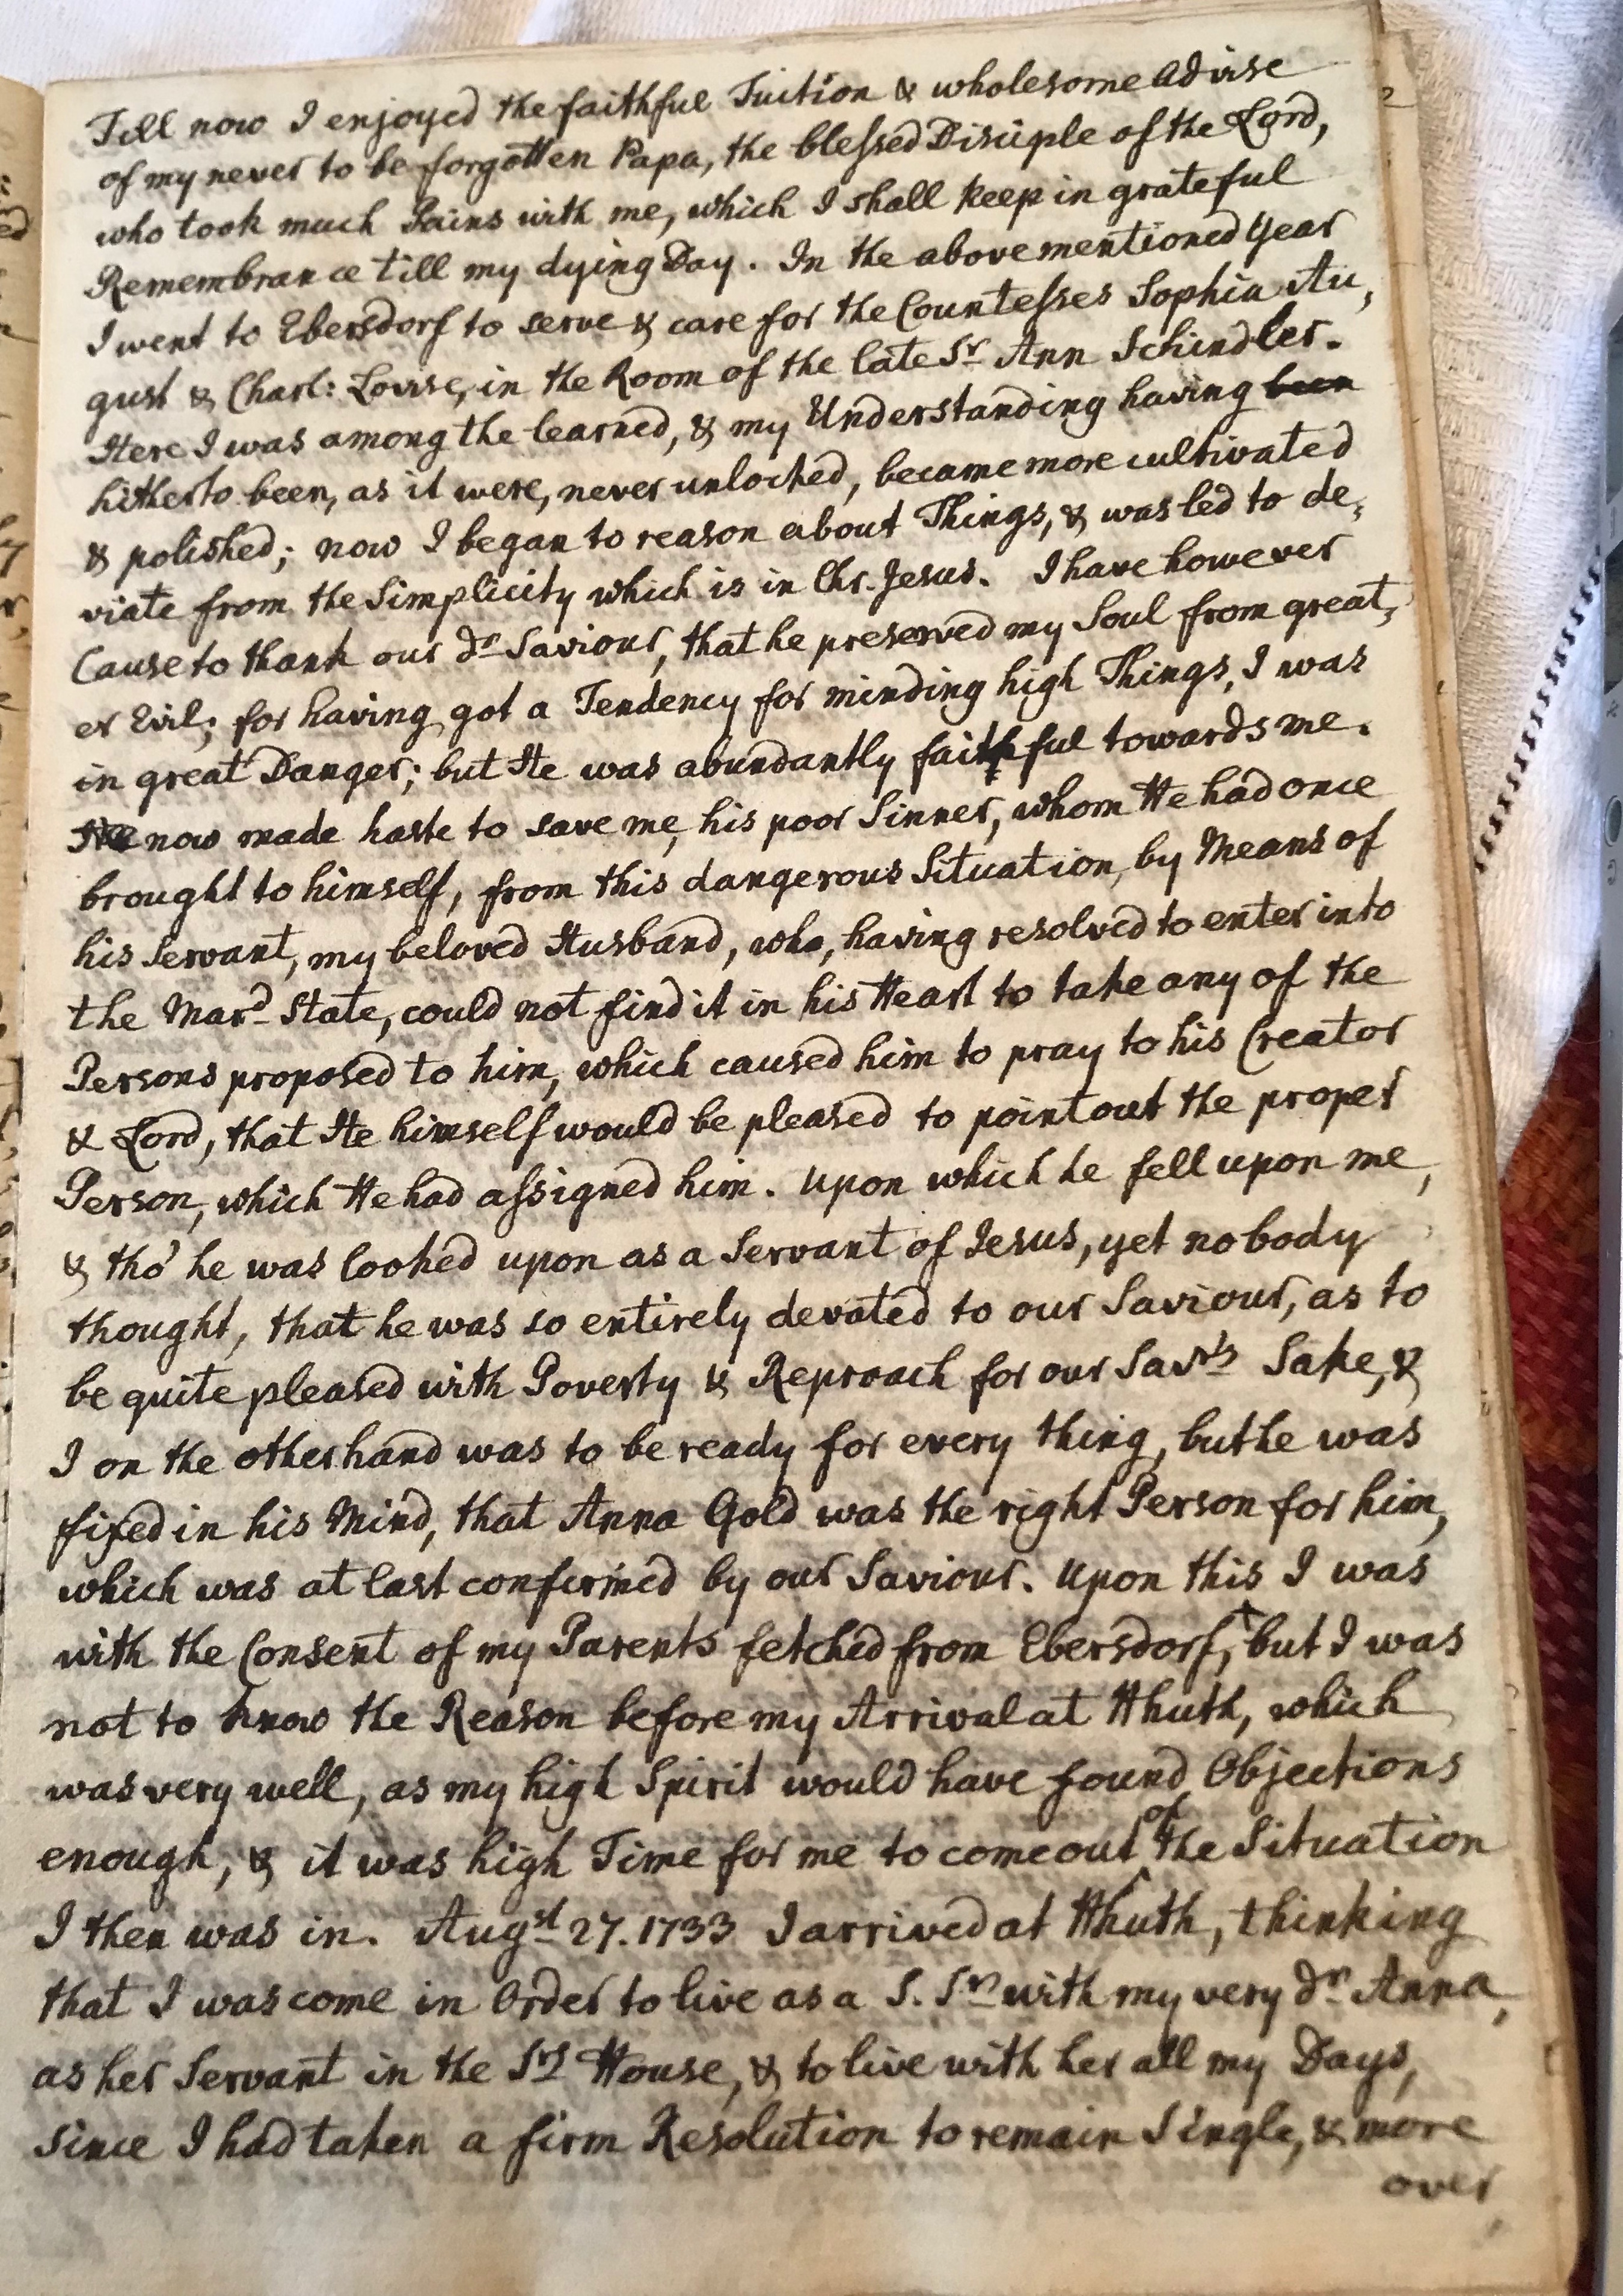 Till now I enjoyed the faithful Tuition & wholesome Advise
of my never to be forgotten Papa, the blessed Disciple of the Lord,
who took much Pains with me, which I shall keep in grateful
Remembrance till my dying Day. In the above mentioned Year
I went to Ebersdorf to serve & care for the Countesses Sophia Au,
gust & Charl: Lovise, in the Room of the late Sr Ann Schindler.
Here I was among the learned, & my Understanding having been
hitherto been, as it were, never unlocked, became more cultivated
& polished; now I began to reason about Things, & was led to de,
viate from the Simplicity which is in Chr. Jesus. I have however
Cause to thank our dr Saviour, that he preserved my Soul from great,
er Evil; for having got a Tendency for minding high Things, I was
in great Danger; but He was abundantly faithful towards me.
He now made haste to save me, his poor Sinner, whom He had once
brought to himself, from this dangerous Situation, by Means of
his Servant, my beloved Husband, who, having resolved to enter into
the Mard State, could not find it in his Heart to take any of the
Persons proposed to him, which caused him to pray to his Creator
& Lord, that He himself would be pleased to point out the proper
Person, which He had assigned him. Upon which he fell upon me,
& tho' he was looked upon as a Servant of Jesus, yet nobody
thought, that he was so entirely devoted to our Saviour, as to
be quite pleased with Poverty & Reproach for our Savrs Sake, &
I on the other hand was to be ready for every thing, but he was
fixed in his Mind, that Anna Gold was the right Person for him,
which was at last confirmed by our Saviour. Upon this I was
with the Consent of my Parents fetched from Ebersdorf,+ but I was
not to know the Reason before my Arrival at Hhuth, which
was very well, as my high Spirit would have found Objections
enough, & it was high Time for me to come out of the Situation
I then was in. Augst 27. 1733 I arrived at Hhuth, thinking
that I was come in Order to live as a S. Sr with my very dr Anna,
as her Servant in the Srs House, & to live with her all my Days,
since I had taken a firm Resolution to remain Single, & more
over